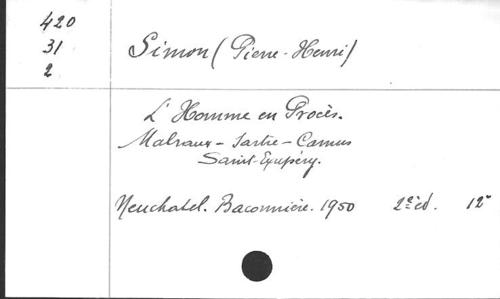 420
31
2
Simon (Pierre-Henri)
L'Homme en Procès.
Malraux - Sartre - Camus
Saint-Exupéry.
Neuchatel. Baconnière. 1950 2e éd. 12°